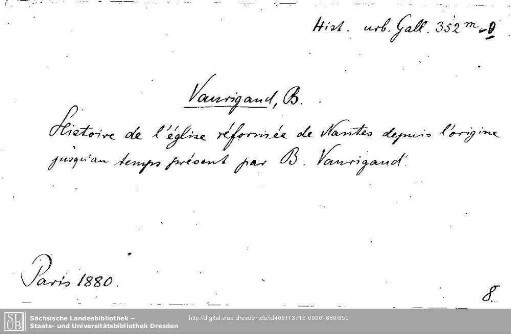 Hist. urb. Gall. 352 m
Vaurigaud, B.
Histoire de l'église réformée de Nantes depuis l'origine
jusqu'au temps présent par B. Vaurigaud.
Paris 1880.
8.
Sächsische Landesbibliothek –
Staats- und Universitätsbibliothek Dresden